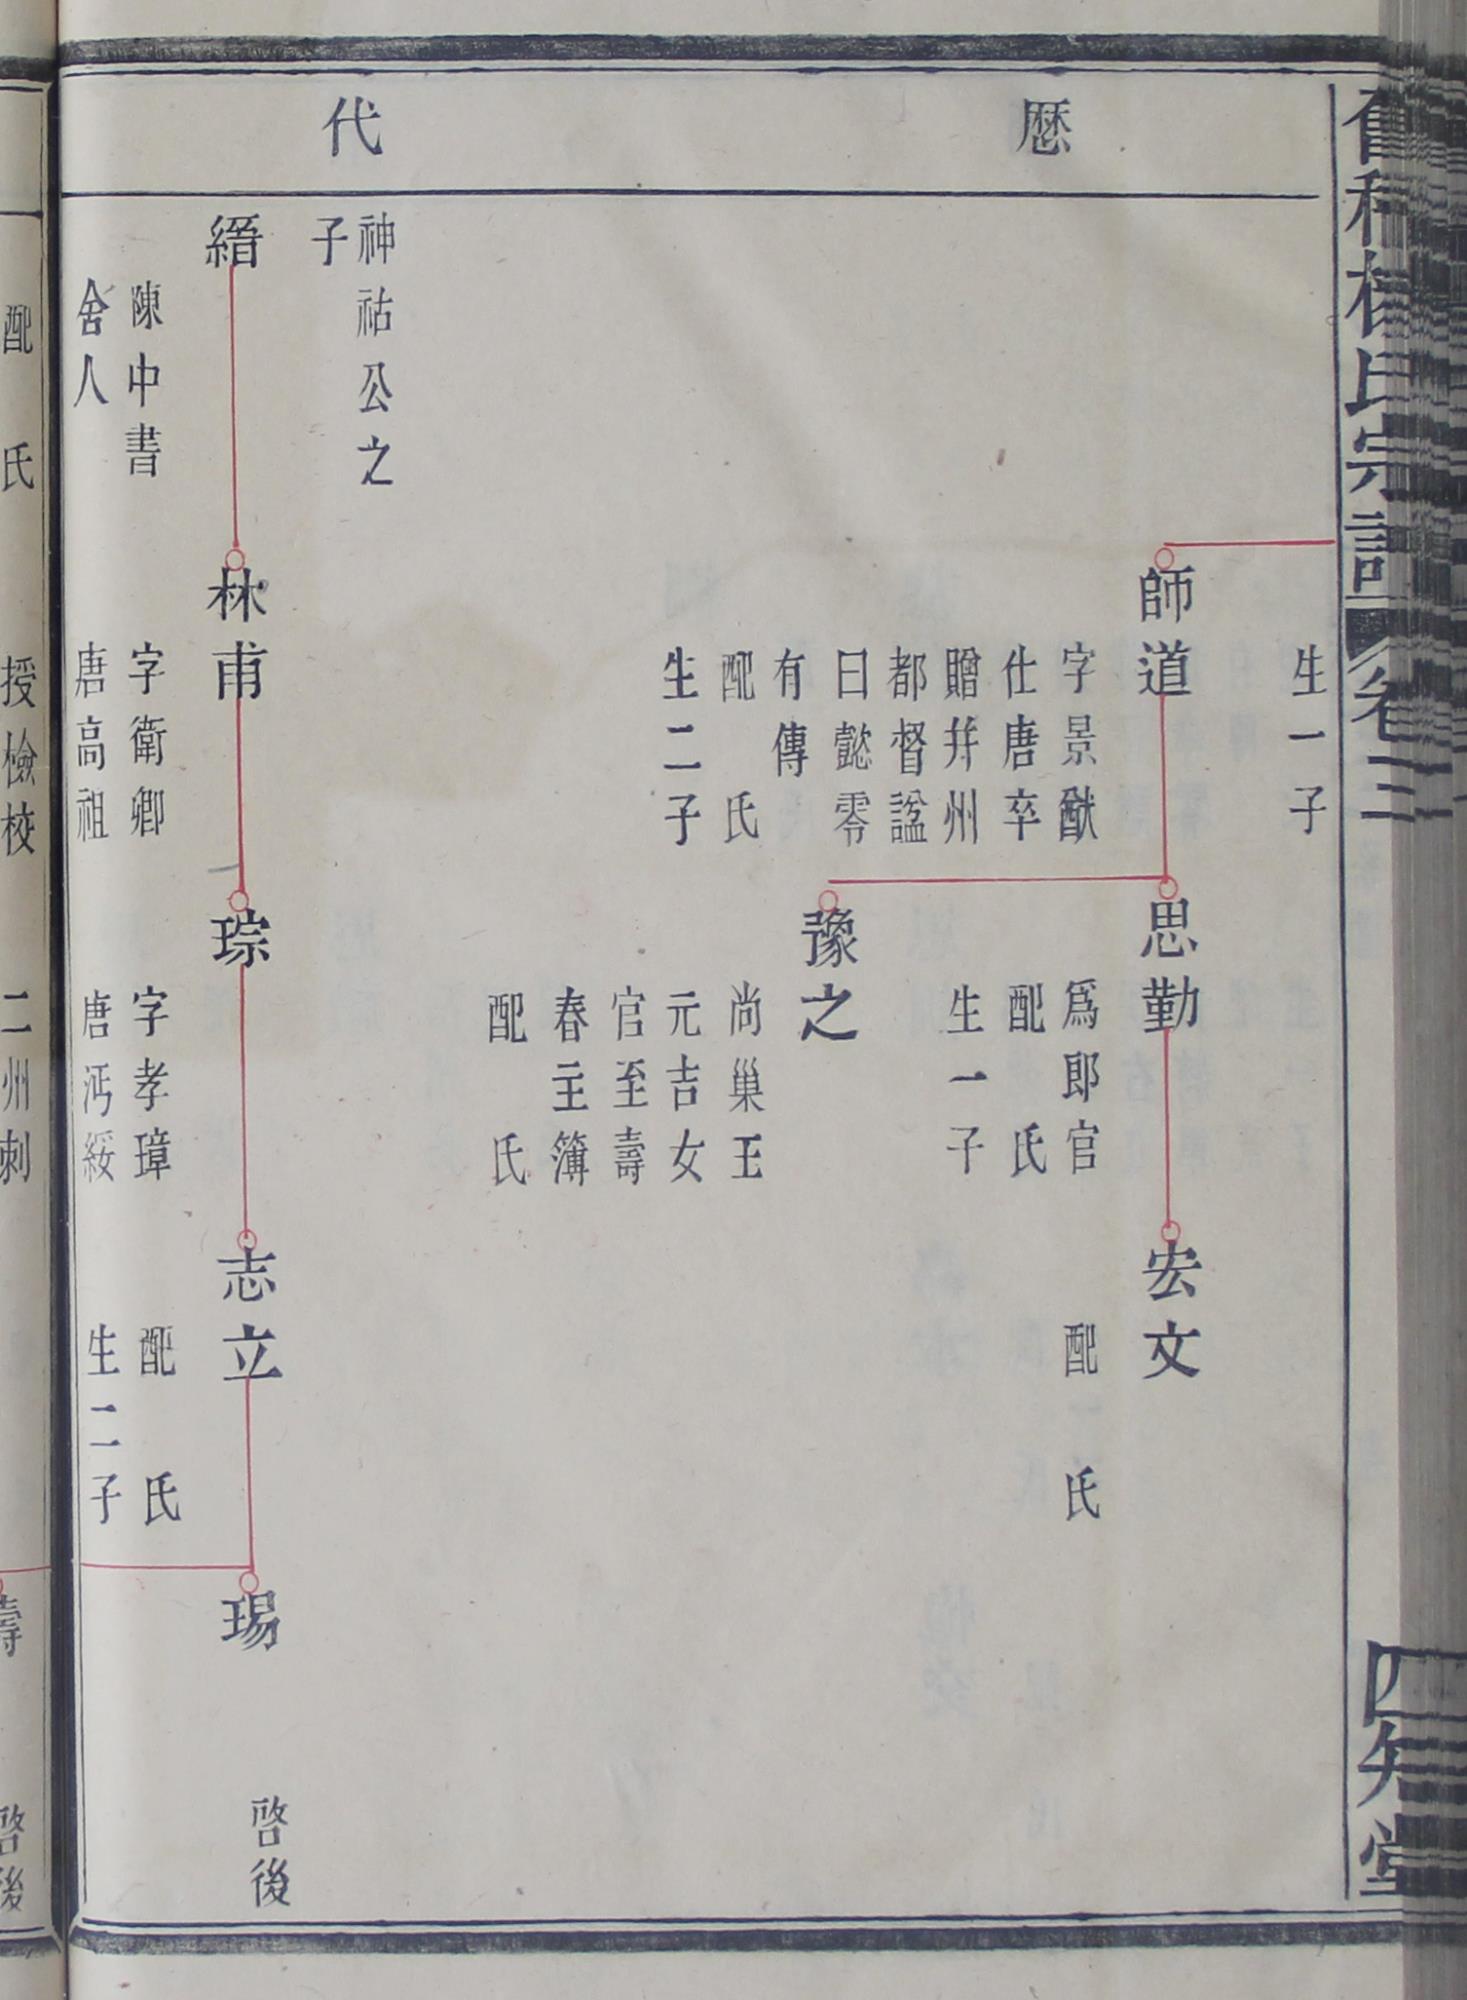 楊氏宗譜
卷三
四知堂
歷
代
生一子
師道
字景猷
仕唐卒
贈并州
都督諡
曰懿零
有傳
配　氏
生二子
思勤
爲郎官
配　氏
生一子
宏文
配　氏
豫之
尚巢王
元吉女
官至壽
春主簿
配　氏
神祜公之
子
縉
陳中書
舍人
林甫
字衛卿
唐高祖
琮
字孝璋
唐沔綏
志立
配　氏
生二子
瑒
啓後
配　氏
授檢校
二州刺
壽
啓後